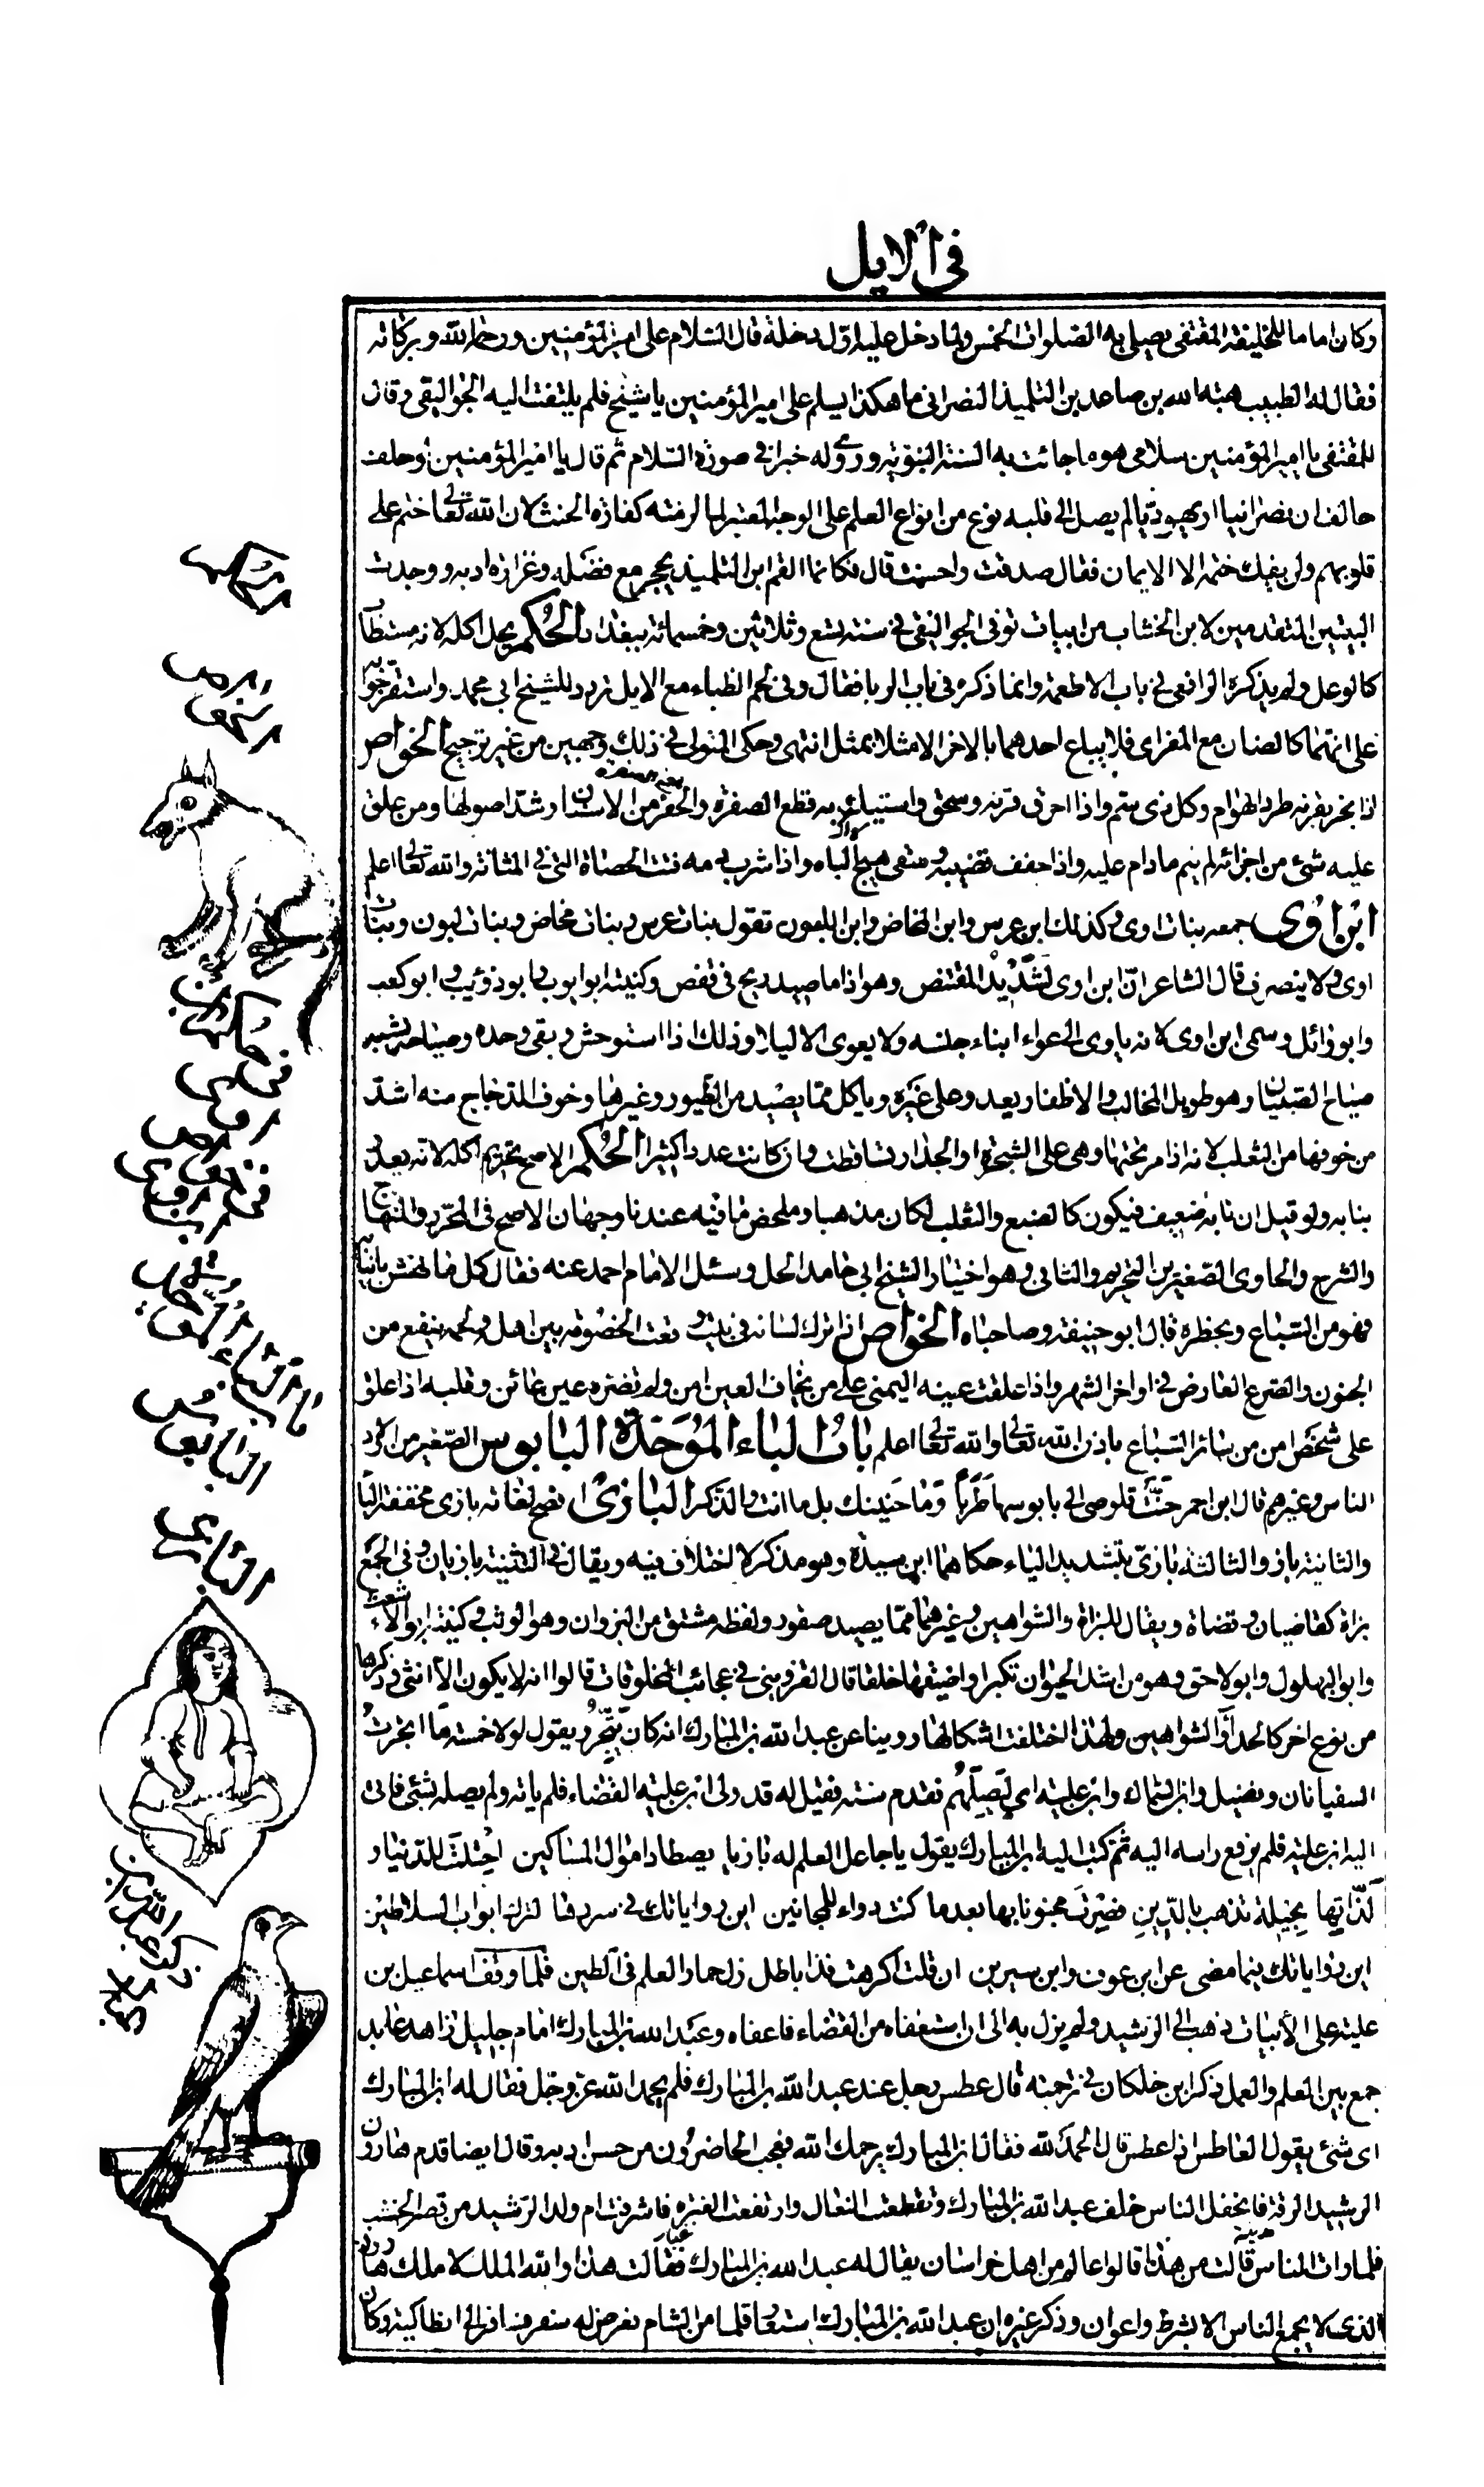 في الايل
وكان اماما للخليفة المقتفى يصلى به الصلوات الخمس ولما دخل عليه اول دخلة قال السلام على امير المؤمنين ورحمة الله وبركاته
فقال له الطبيب هبة الله بن صاعد بن التلميذ النصرانى ما هكذا يسلم على امير المؤمنين يا شيخ فلم يلتفت اليه الجواليقى وقال
للمقتفى يا امير المؤمنين سلامى هو ما جائت به السنة النبوية وروى له خبرا فى صورة السلام ثم قال يا امير المؤمنين لو حلف
حالف ان نصرانيا او يهوديا لم يصل الى قلبه نوع من انواع العلم على الوجه المعتبر لما لزمته كفارة الحنث لان الله تعالى ختم على
قلوبهم ولن يفك ختمه الا الايمان فقال صدقت واحسنت قال فكانما القم ابن التلميذ بحجر مع فضله وغزارة ادبه ووجدت
البيتين المتقدمين لابن الخشاب من ابيات توفى الجواليقى فى سنة تسع وثلاثين وخمسمائة ببغداد الحكم يحل اكله لانه مستطاب
كالوعل ولم يذكره الرافعى فى باب الاطعمة وانما ذكره فى باب الربا فقال وفى لحم الظباء مع الايل تردد للشيخ ابى محمد واستقر جوابه
على انهما كالضان مع المعزى فلا يباع احدهما بالاخر الا مثلا بمثل انتهى وحكى المتولى فى ذلك وجهين من غير ترجيح الخواص
اذا بخر بقرنه طرد الهوام وكل ذى سم واذا احرق قرنه وسحق واستيك به قطع الصفرة والحفر من الاسنان وشد اصولها ومن علق
عليه شئ من اجزائه لم ينم ما دام عليه واذا جفف قضيبه وسقى هيج الباه واذا شرب دمه فتت الحصاة التى فى المثانة والله تعالى اعلم
ابن اوى جمعه بنات اوى وكذلك ابن عرس وابن المخاض وابن اللبون تقول بنات عرس وبنات مخاض وبنات لبون وبنات
اوى ولا ينصرف قال الشاعر ان ابن اوى لشديد المقتنص وهو اذا ما صيد ريح فى قفص وكنيته ابو ايوب وابو ذؤيب وابو كعب
وابو وائل وسمى ابن اوى لانه ياوى الى عواء ابناء جنسه ولا يعوى الا ليلا وذلك اذا استوحش وبقى وحده وصياحه يشبه
صياح الصبيان وهو طويل المخالب والاظفار يعدو على غيره وياكل مما يصيد من الطيور وغيرها وخوف الدجاج منه اشد
من خوفها من الثعلب لانه اذا مر تحتها وهى على الشجرة او الجدار تساقطت وان كانت عددا كثيرا الحكم الاصح تحريم اكله لانه يعدو
بنابه ولو قيل ان نابه ضعيف فيكون كالضبع والثعلب لكان مذهبا وملخص ما فيه عندنا وجهان الاصح فى المحرر والمنهاج
والشرح والحاوى الصغيرين التحريم والثانى وهو اختيار الشيخ ابى حامد الحل وسئل الامام احمد عنه فقال كل ما نهش بانيابه
فهو من السباع وبحظره قال ابو حنيفة وصاحباه الخواص ان ترك لسانه فى بيت وقعت الخصومة بين اهله ولحمه ينفع من
الجنون والصرع العارض فى اواخر الشهر واذا علقت عينه اليمنى على من يخاف العين امن ولم تضره عين عائن وقلبه اذا علق
على شخص امن من سائر السباع باذن الله تعالى والله تعالى اعلم باب الباء الموحدة البابوس الصغير من اولاد
الناس وغيرهم قال ابن احمر حنت قلوصى الى بابوسها طربا وما حنينك بل ما انت والذكر البازى افصح لغاته بازى مخففة اليا
والثانية باز والثالثة بازى بتشديد الياء حكاهما ابن سيدة وهو مذكر لا اختلاف فيه ويقال فى التثنية بازيان وفى الجمع
بزاة كقاضيان وقضاة ويقال للبزاة والشواهين وغيرهما مما يصيد صقور ولفظه مشتق من البزوان وهو الوثب وكنيته ابو الاشعث
وابو البهلول وابو لاحق وهو من اشد الحيوان تكبرا واضيقها خلقا قال القزوينى فى عجائب المخلوقات قالوا انه لا يكون الا انثى وذكرها
من نوع اخر كالحدأ والشواهين ولهذا اختلفت اشكالها روينا عن عبد الله بن المبارك انه كان يتجر ويقول لولا خمسة ما اتجرت
السفيانان وفضيل وابن السماك وابن علية اى ليصلهم فقدم سنة فقيل له قد ولى ابن علية القضاء فلم ياته ولم يصله بشئ فاتى
اليه ابن علية فلم يرفع راسه اليه ثم كتب اليه ابن المبارك يقول يا جاعل العلم له بازيا يصطاد اموال المساكين احتلت للدنيا و
لذاتها بحيلة تذهب بالدين فصرت مجنونا بها بعد ما كنت دواء للمجانين اين رواياتك فى سردها لترك ابواب السلاطين
اين رواياتك فيما مضى عن ابن عون وابن سيرين ان قلت اكرهت فذا باطل زل حمار العلم فى الطين فلما وقف اسماعيل بن
علية على الأبيات ذهب الى الرشيد ولم يزل به الى ان استعفاه من القضاء فاعفاه وعبد الله بن المبارك امام جليل زاهد عابد
جمع بين العلم والعمل ذكر ابن خلكان فى ترجمته قال عطس رجل عند عبد الله بن المبارك فلم يحمد الله عز وجل فقال له ابن المبارك
اى شئ يقول العاطس اذا عطس قال الحمد لله فقال ابن المبارك يرحمك الله فعجب الحاضرون من حسن ادبه وقال ايضا قدم هارون
الرشيد الرقة فانجفل الناس خلف عبد الله بن المبارك وتقطعت النعال وارتفعت الغبرة فاشرفت ام ولد الرشيد من قصر الخشب
فلما رات الناس قالت من هذا قالوا عالم من اهل خراسان يقال له عبد الله بن المبارك فقالت هذا والله الملك لا ملك هارون
الذى لا يجمع الناس الا بشرط واعوان وذكر غيره ان عبد الله بن المبارك استعار قلما من الشام فعرض له سفر فسافر الى انطاكية وكان
باب الباء الموحدة
البابوس
البازى
ذكر عبد الله بن
المبارك